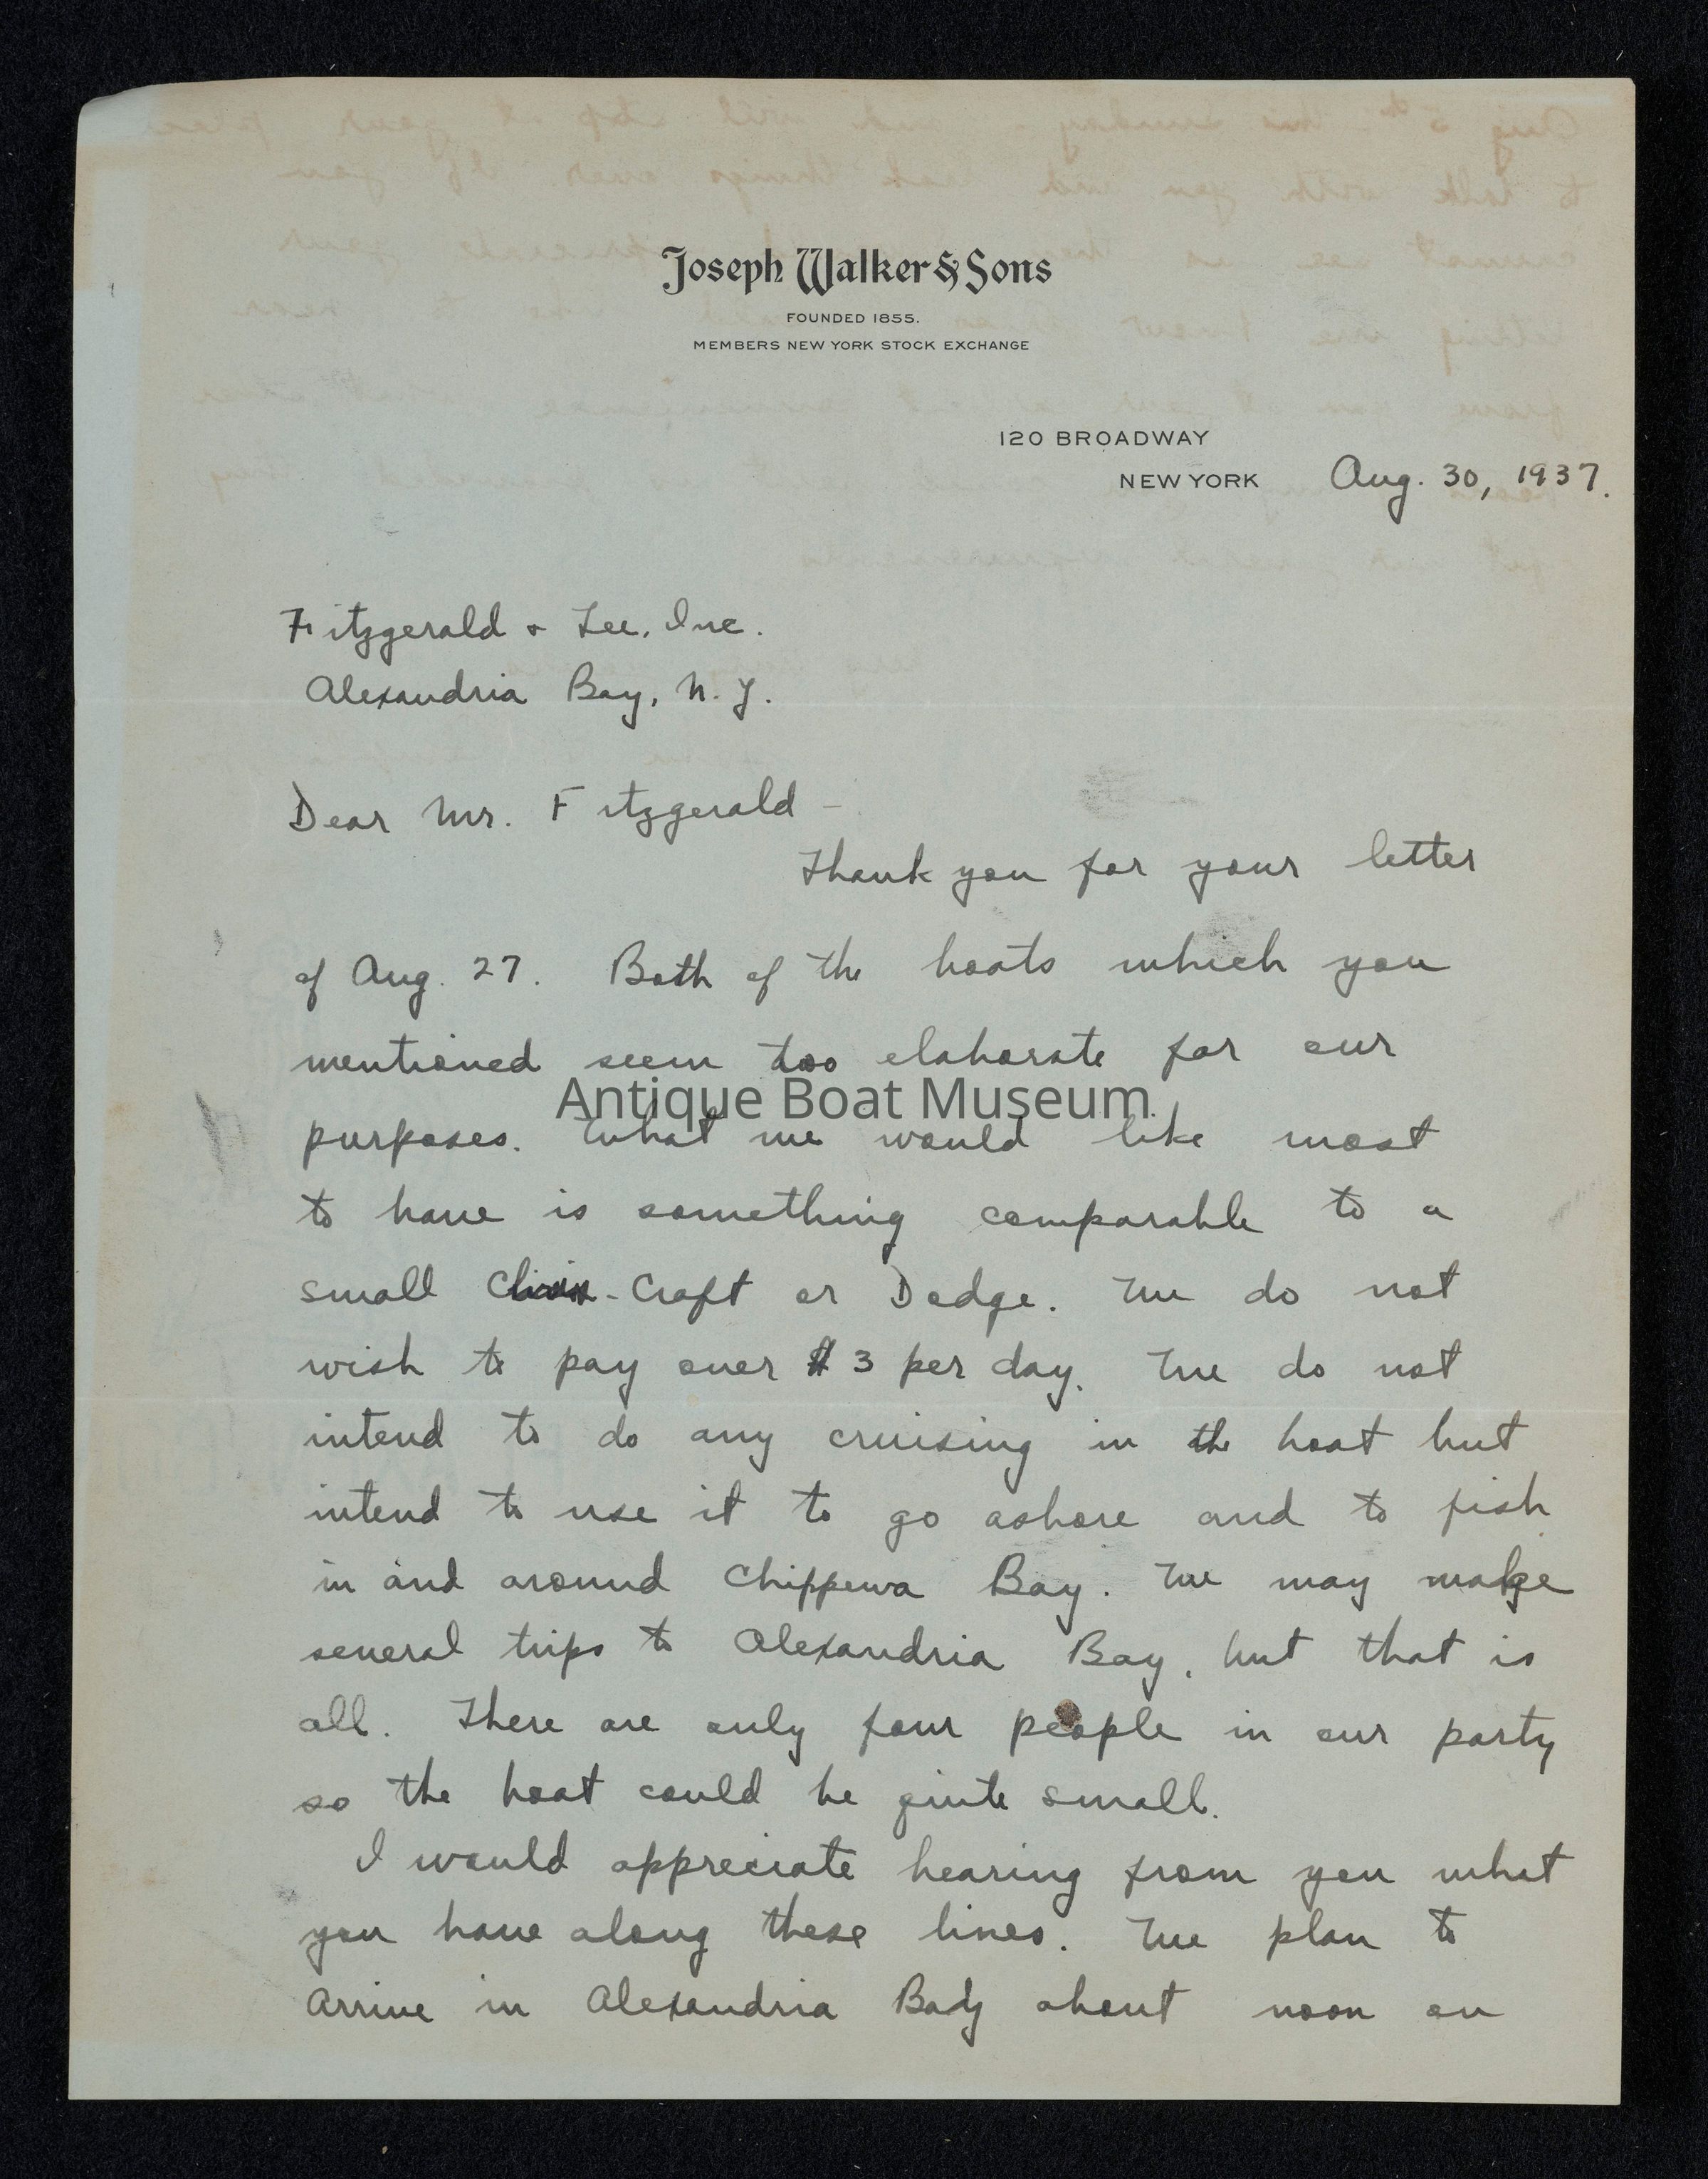 Joseph Walker & Sons
FOUNDED 1855.
MEMBERS NEW YORK STOCK EXCHANGE
120 BROADWAY
NEW YORK Aug. 30, 1937.
Fitzgerald & Lee, Inc.
Alexandria Bay, N. Y.
Dear Mr. Fitzgerald -
Thank you for your letter
of Aug. 27. Both of the boats which you
mentioned seem too elaborate for our
Antique Boat Museum
purposes. What we would like most
to have is something comparable to a
small Chris-Craft or Dodge. We do not
wish to pay over $3 per day. We do not
intend to do any cruising in the boat but
intend to use it to go ashore and to fish
in and around Chippewa Bay. We may make
several trips to Alexandria Bay, but that is
all. There are only four people in our party
so the boat could be quite small.
I would appreciate hearing from you what
you have along these lines. We plan to
arrive in Alexandria Bay about noon on